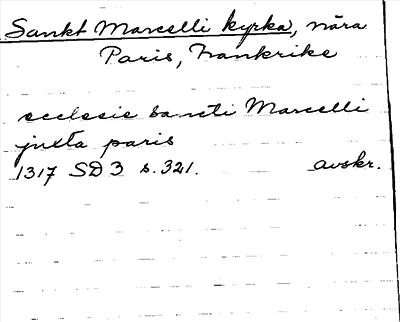 Sankt Marcelli kyrka, nära
Paris, Frankrike
ecclesie sancti Marcelli
juxta paris
1317 SD 3 s. 321. avskr.